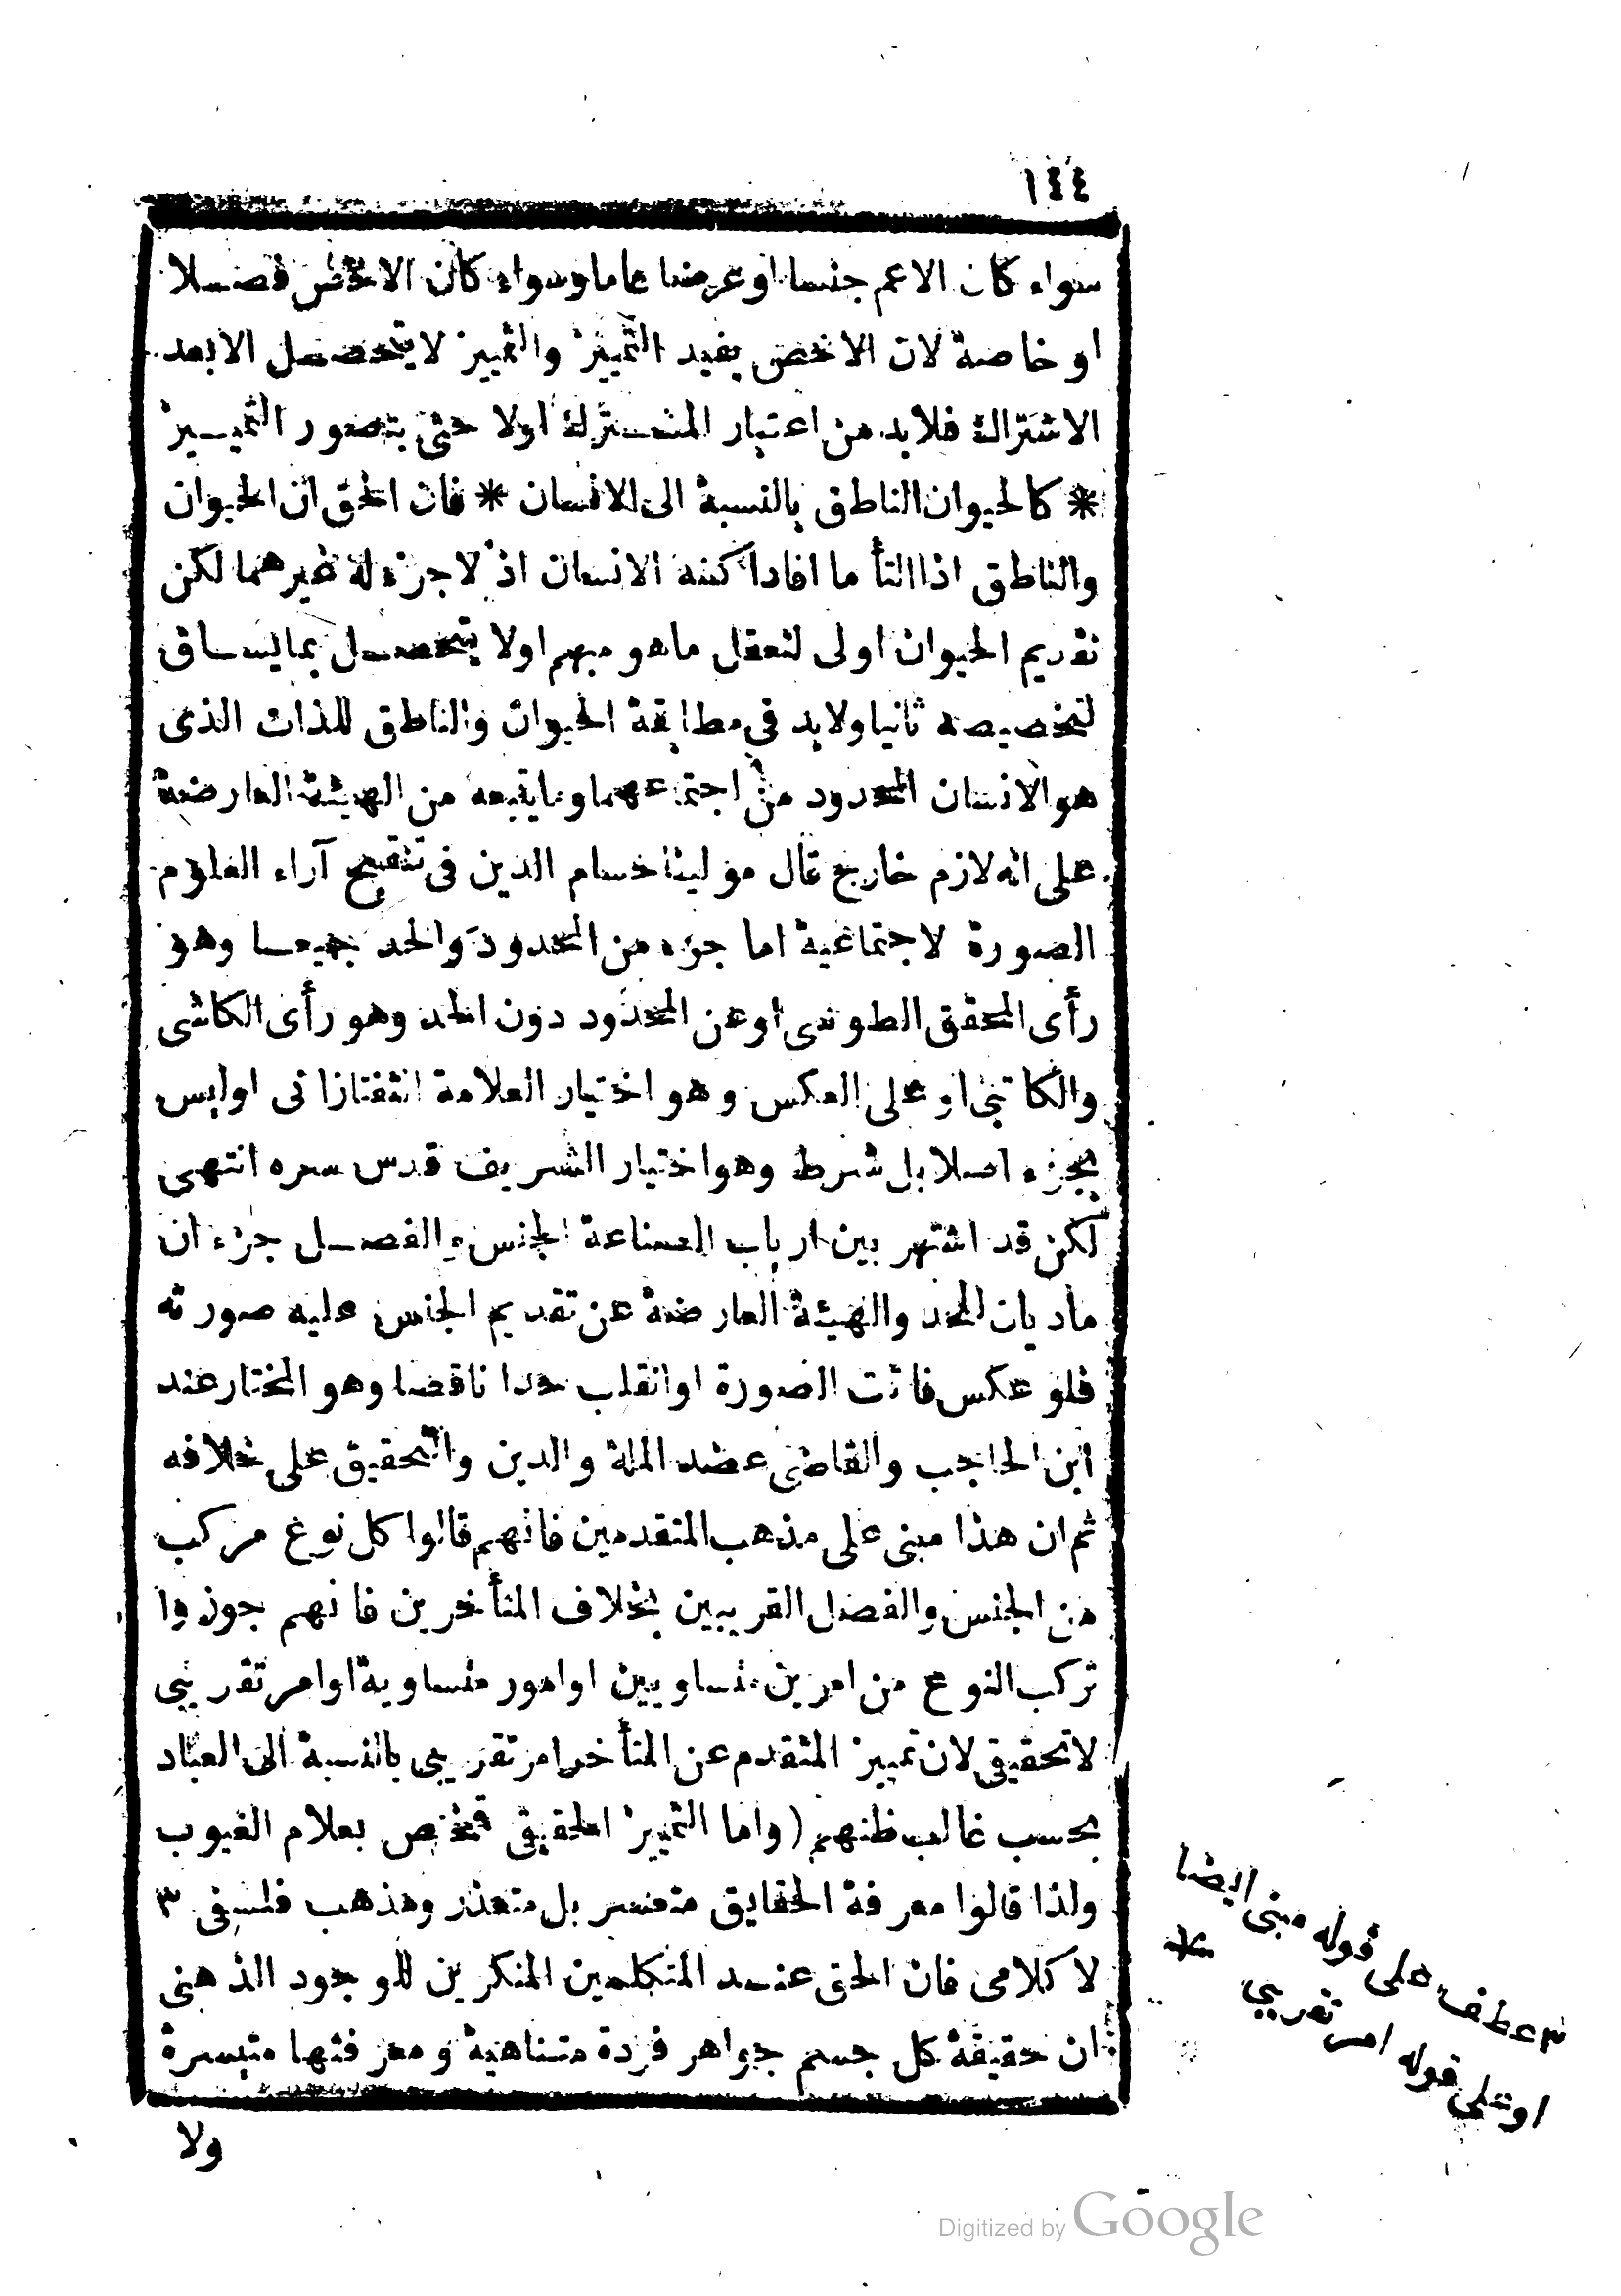 ١٤٤
سواء كان الاعم جنسا او عرضا عاما وسواء كان الاخص فصلا
او خاصة لان الاخص يفيد التمييز والتمييز لا يتحصل الا بعد
الاشتراك فلا بد من اعتبار المشترك اولا حتى يتصور التمييز
* كالحيوان الناطق بالنسبة الى الانسان * فان الحق ان الحيوان
والناطق اذا التأما افادا كنه الانسان اذ لا جزء له غيرهما لكن
تقديم الحيوان اولى لتعقل ما هو مبهم اولا يتحصل بما يساق
لتخصيصه ثانيا ولابد فى مطابقة الحيوان والناطق للذات الذى
هو الانسان المحدود من اجتماعهما وما يتبعه من الهيئة العارضة
على انه لازم خارج قال مولينا حسام الدين فى تنقيح آراء العلوم
الصورة لاجتماعية اما جزء من المحدود والحد جميعا وهو
رأى المحقق الطوسى او عن المحدود دون الحد وهو رأى الكاشى
والكاتبى او على العكس وهو اختيار العلامة التفتازانى او ليس
بجزء اصلا بل شرط وهو اختيار الشريف قدس سره انتهى
لكن قد اشتهر بين ارباب الصناعة الجنس والفصل جزء ان
ماديان للحد والهيئة العارضة عن تقديم الجنس عليه صورته
فلو عكس فاتت الصورة او انقلب حدا ناقصا وهو المختار عند
ابن الحاجب والقاضى عضد الملة والدين والتحقيق على خلافه
ثم ان هذا مبنى على مذهب المتقدمين فانهم قالوا كل نوع مركب
من الجنس والفصل القريبين بخلاف المتأخرين فانهم جوزوا
تركب النوع من امرين متساويين او امور متساوية او امر تقريبى
لا تحقيقى لان تمييز المتقدم عن المتأخر امر تقريبى بالنسبة الى العباد
بحسب غالب ظنهم (واما التمييز الحقيقى فمختص بعلام الغيوب
ولذا قالوا معرفة الحقايق متعسر بل متعذر ومذهب فلسفى ٣
لا كلامى فان الحق عند المتكلمين المنكرين للوجود الذهنى
ان حقيقة كل جسم جواهر فردة متناهية ومعرفتها متيسرة
ولا
٣ عطف على قوله مبنى ايضا
او على قوله امر تقريبى *
Digitized by Google